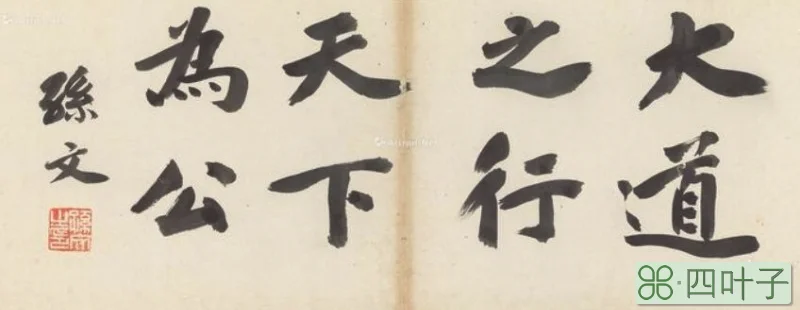 大道
之行
天下
為公
孫文
孫文之印
四叶子